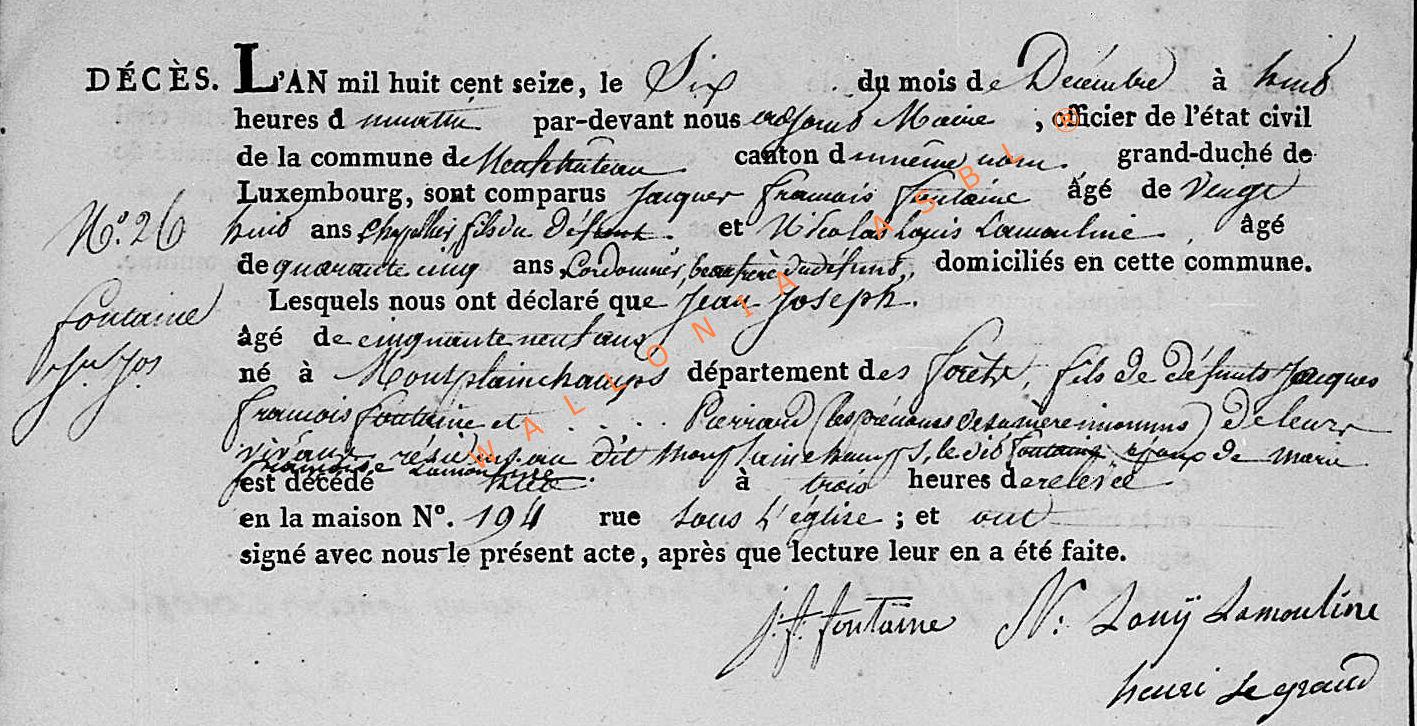 DÉCÈS. L'AN mil huit cent seize, le Six du mois de Décembre à huit
heures du matin par-devant nous adjoint Maire, officier de l'état civil
de la commune de Neufchâteau canton du même nom. grand-duché de
Luxembourg, sont comparus Jacques François Fontaine âgé de Vingt
huit ans, Chapellier, fils du Défunt. et Nicolas Louis Lamouline, âgé
de quarante cinq ans, Cordonnier, beaufrère du défunt, domiciliés en cette commune.
N.° 26
Fontaine
Jn. Jos
Lesquels nous ont déclaré que Jean Joseph.
âgé de cinquante neuf ans,
né à Montplainchamps département des forêts, fils de défunts Jacques
François fontaine et . . . . Pierrard (les prénoms de sa mère inconnus) de leur
vivant résidens au dit Montplainchamps, le dit fontaine époux de marie
françoise Lamouline
est décédé hier. à trois heures de relevée
en la maison N°. 194 rue Sous L'église ; et ont
signé avec nous le présent acte, après que lecture leur en a été faite.
j. f. fontaine N: Louÿ Lamouline
henri Le grand
WALLONIA ASBL ®